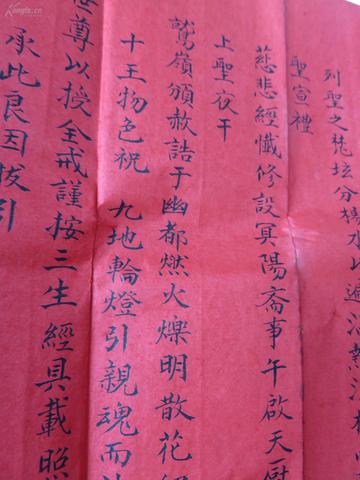 列聖之梵坛分楊水以遍洒熱
聖宣禮
慈悲經懺修設冥陽斋事午啟天厨
上聖夜干
鷲嶺頒赦誥于幽都燃火爍明散花
十王物色祝 九地輪燈引親魂而
世尊以授全戒謹按三生經具載照
承此良因拔引